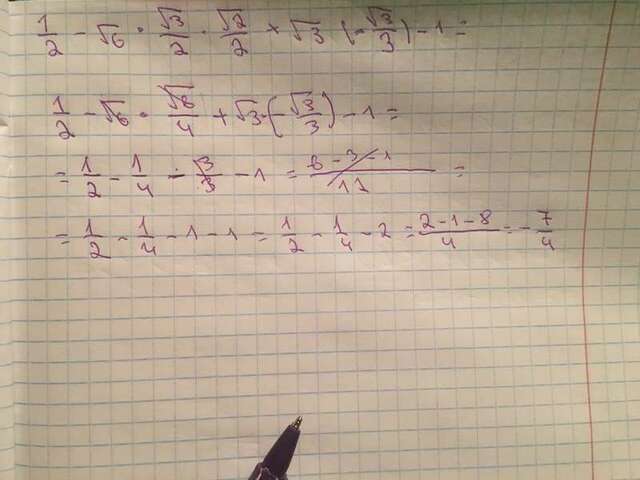 1/2 - √6 · √3/2 · √2/2 + √3 (-√3/3) - 1 =
1/2 - √6 · √8/4 + √3·(-√3/3) - 1 =
= 1/2 - 1/4 - 3/3 - 1 = =
= 1/2 - 1/4 - 1 - 1 = 1/2 - 1/4 - 2 = 2-1-8/4 = -7/4